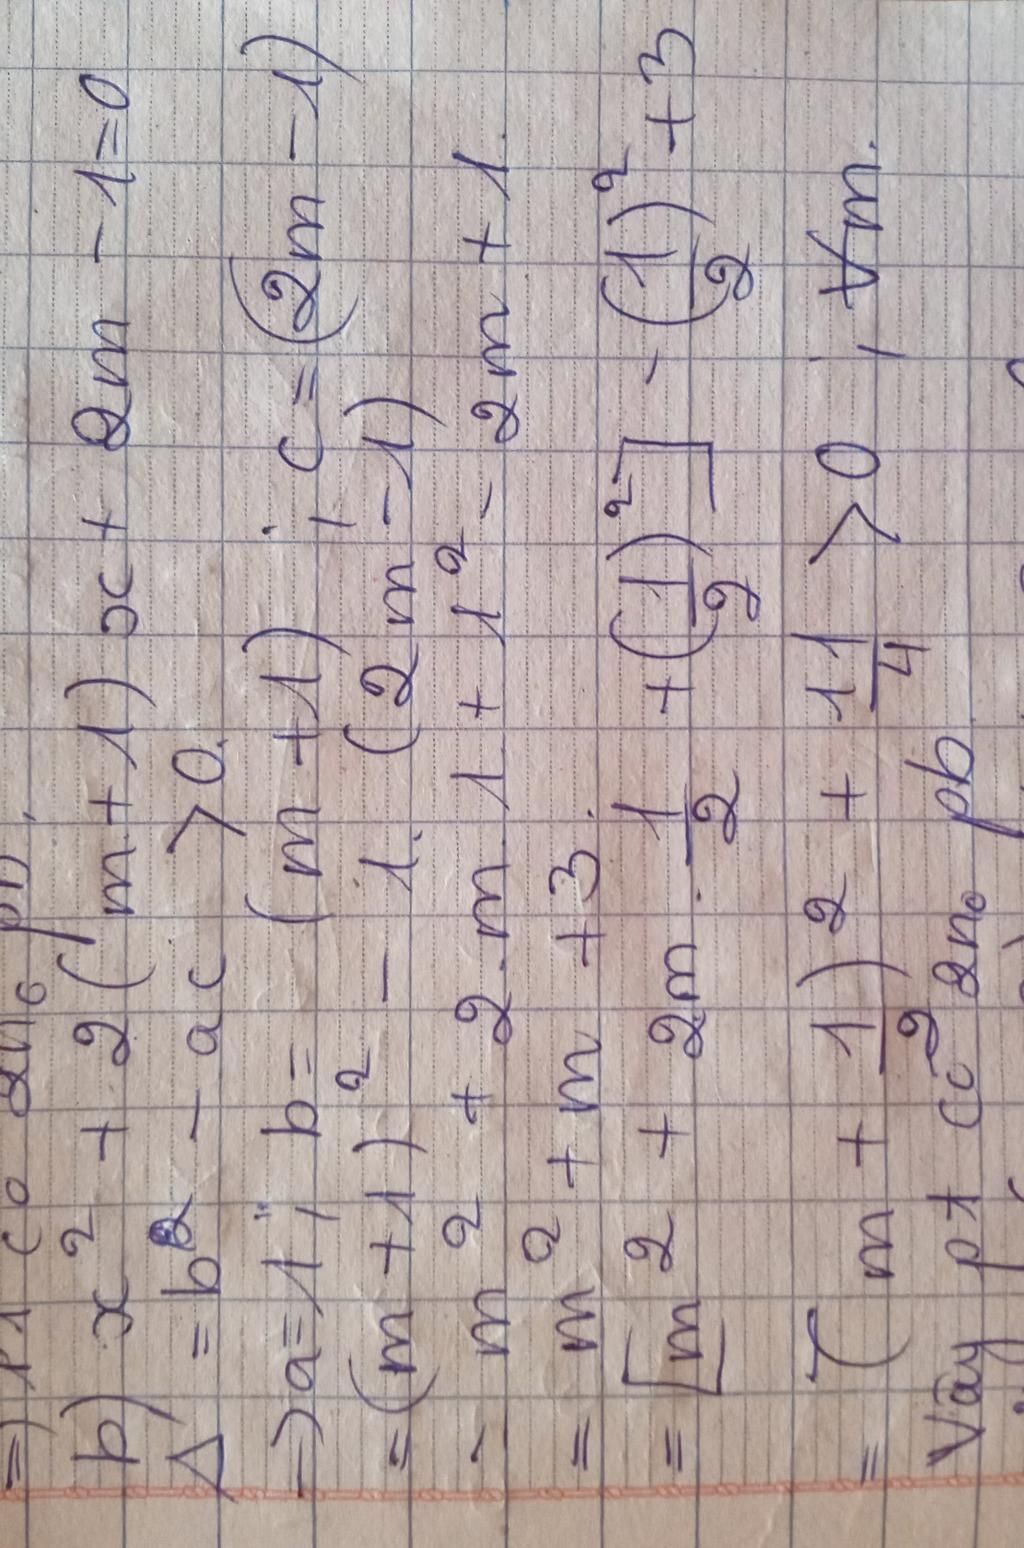 =) PT có 2n₀ pb
b) x² + 2(m+1)x + 2m - 1 = 0
Δ = b² - ac > 0.
→ a=1; b= (m+1); c = (2m-1)
= (m+1)² - 1. (2m-1)
- m² + 2.m.1 + 1² - 2m + 1.
= m² + m + 3.
= [m² + 2m.\frac{1}{2} + (\frac{1}{2})²] - (\frac{1}{2})² + 3
= (m + \frac{1}{2})² + \frac{11}{4} > 0; ∀m.
Vậy pt có 2n₀ pb